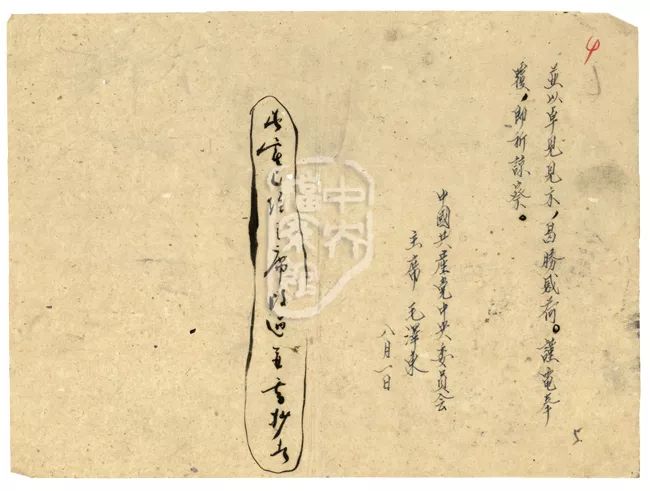 4
並以卓見見示，曷勝感荷。謹電奉
復，即祈諒察。
中國共產党中央委員会
主席 毛澤東
八月一日
主席改過
中央檔案館
5